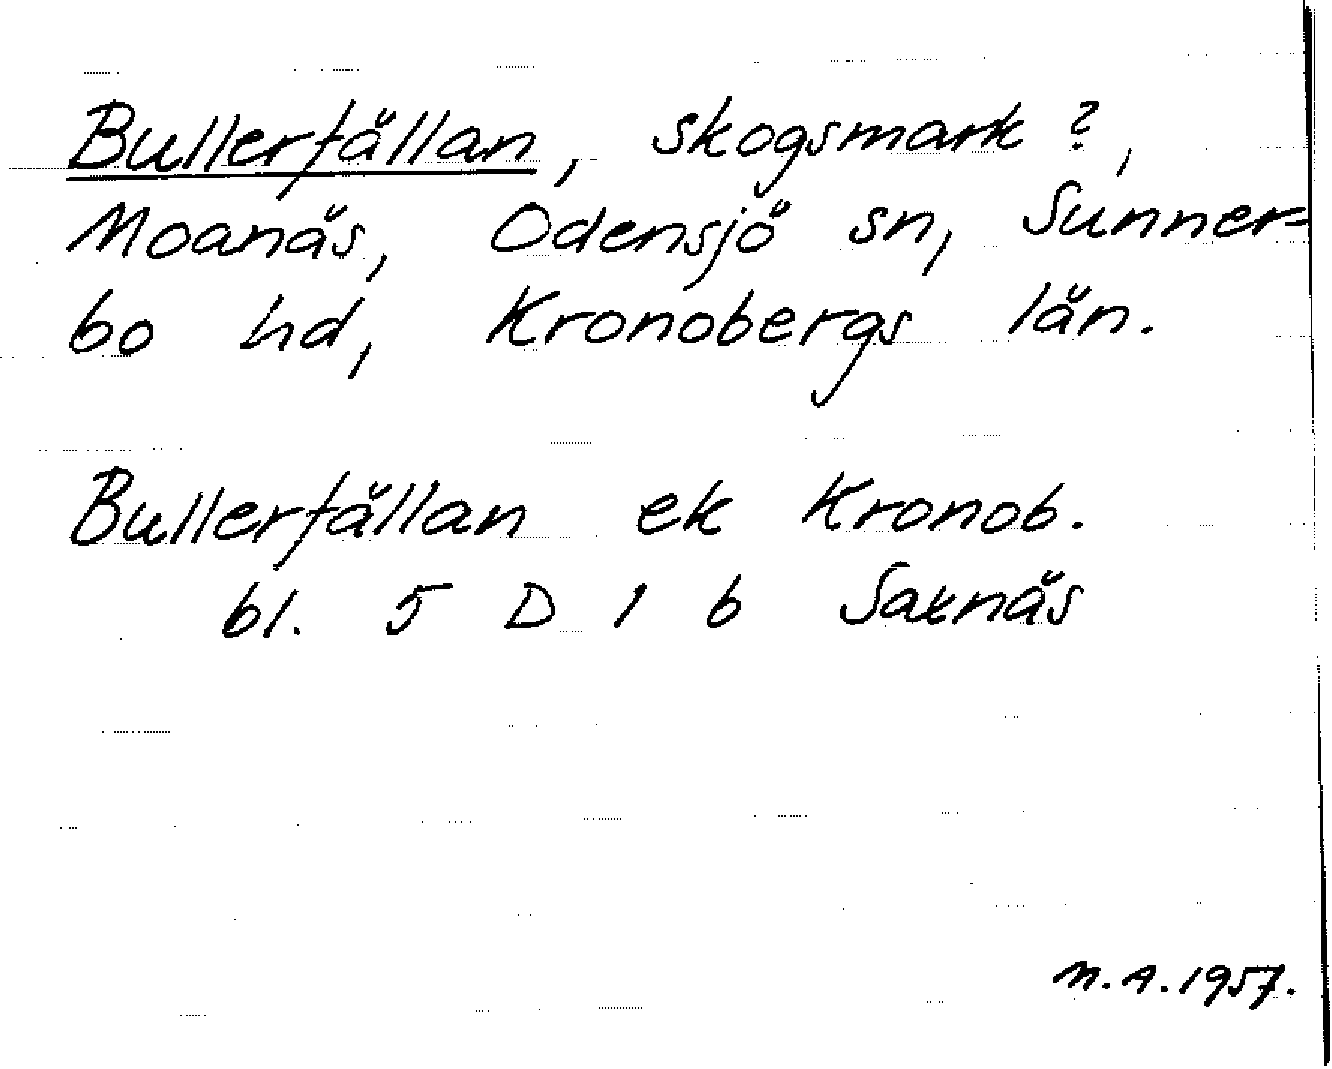 Bullerfällan, skogsmark?,
Moanäs, Odensjö sn, Sunner=
bo hd, Kronobergs län.
Bullerfällan ek Kronob.
bl. 5 D 1 b Saxnäs
M.A. 1957.